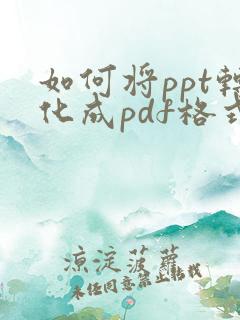 如何将ppt转
化成pdf格式
凉淀菠萝
未经同意禁止转载